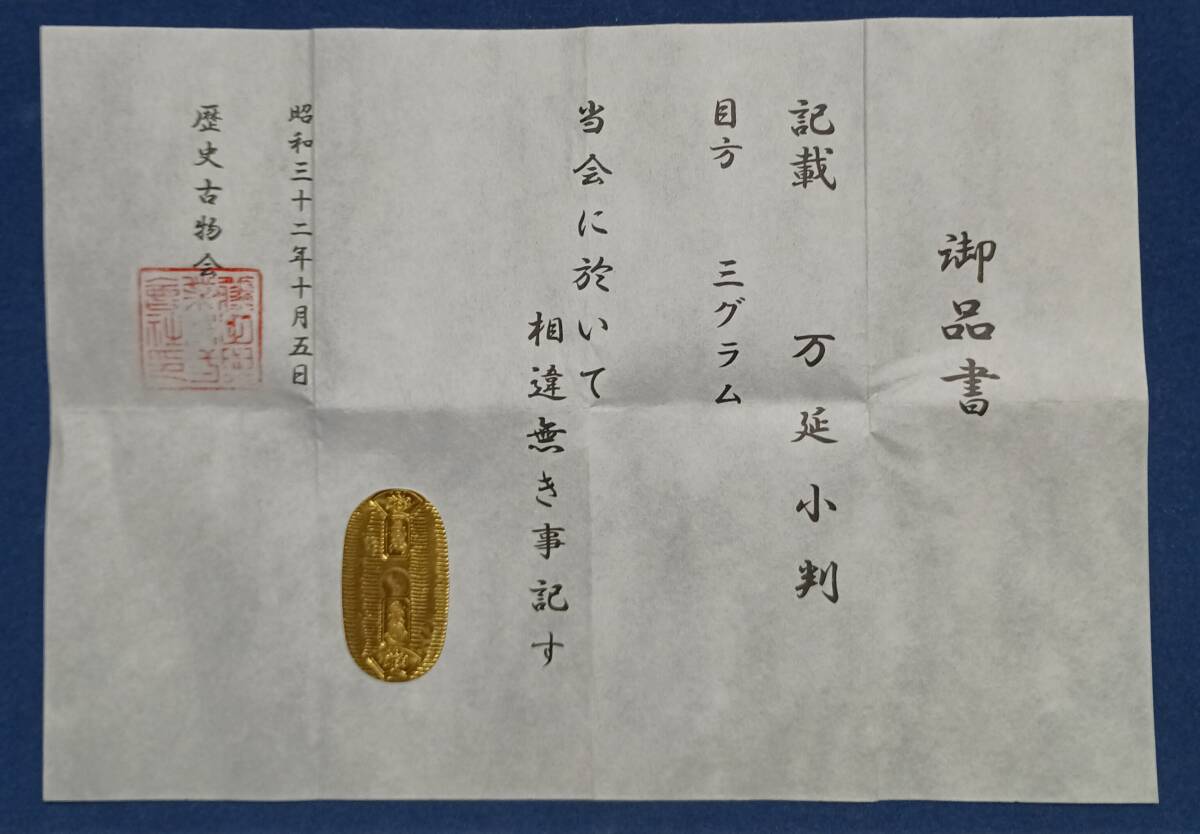 御品書
記載 万延小判
目方 三グラム
当会に於いて
相違無き事記す
昭和三十二年十月五日
歴史古物会